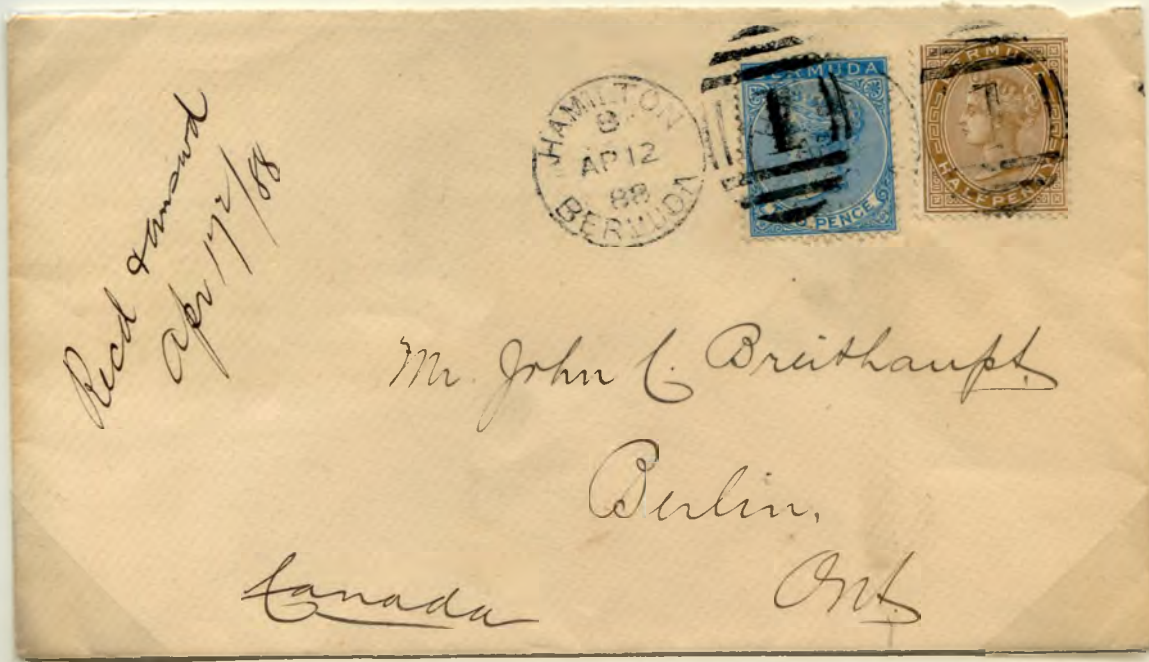 Recd & answd
Apr 17/88
HAMILTON
B
AP 12
88
BERMUDA
BERMUDA
1
PENCE
1
HALFPENNY
Mr. John C. Breithaupt
Berlin,
Ont.
Canada